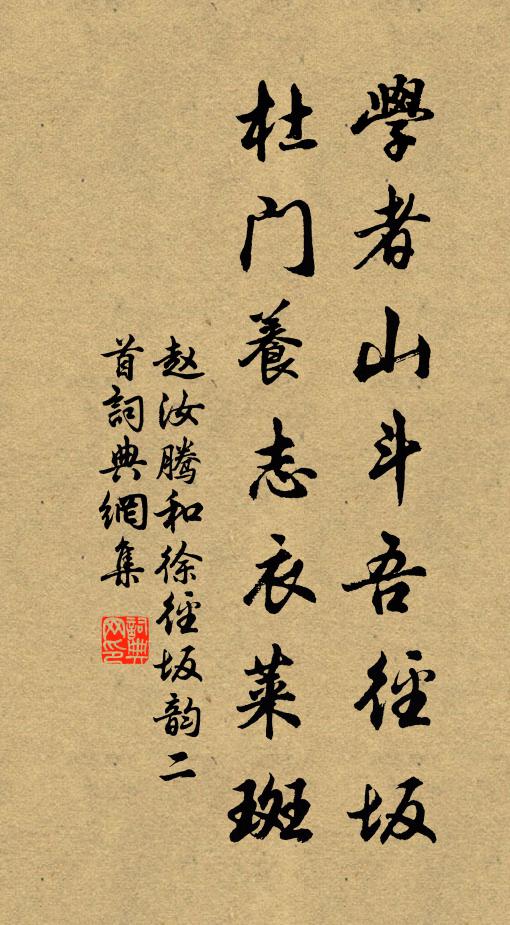 學者山斗吾徑坂
杜門養志衣萊斑
赵汝騰和徐徑坂韵二
首詞典網集
詞典
网印